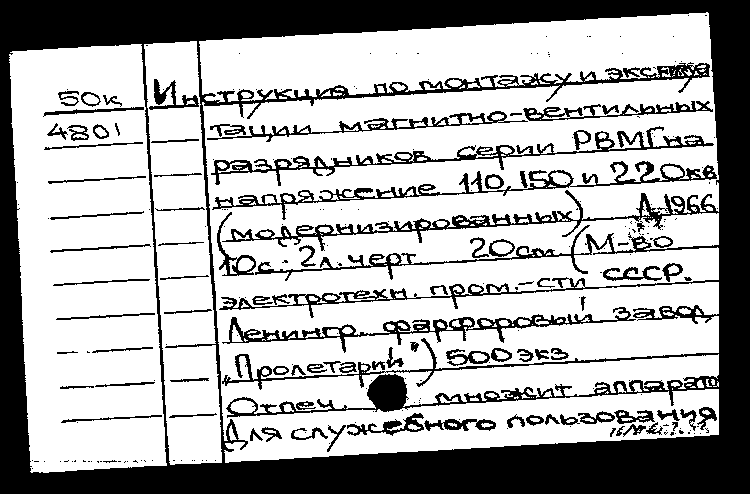 50к Инструкция по монтажу и эксплуа
4801 тации магнитно-вентильных
разрядников серии РВМГ на
напряжение 110, 150 и 220кв
(модернизированных). Л. 1966
10с.; 2л. черт 20см (М-во
электротехн. пром.-сти СССР.
Ленингр. фарфоровый завод
"Пролетарий") 500 экз.
Отпеч. множит. аппарат
Для служебного пользования